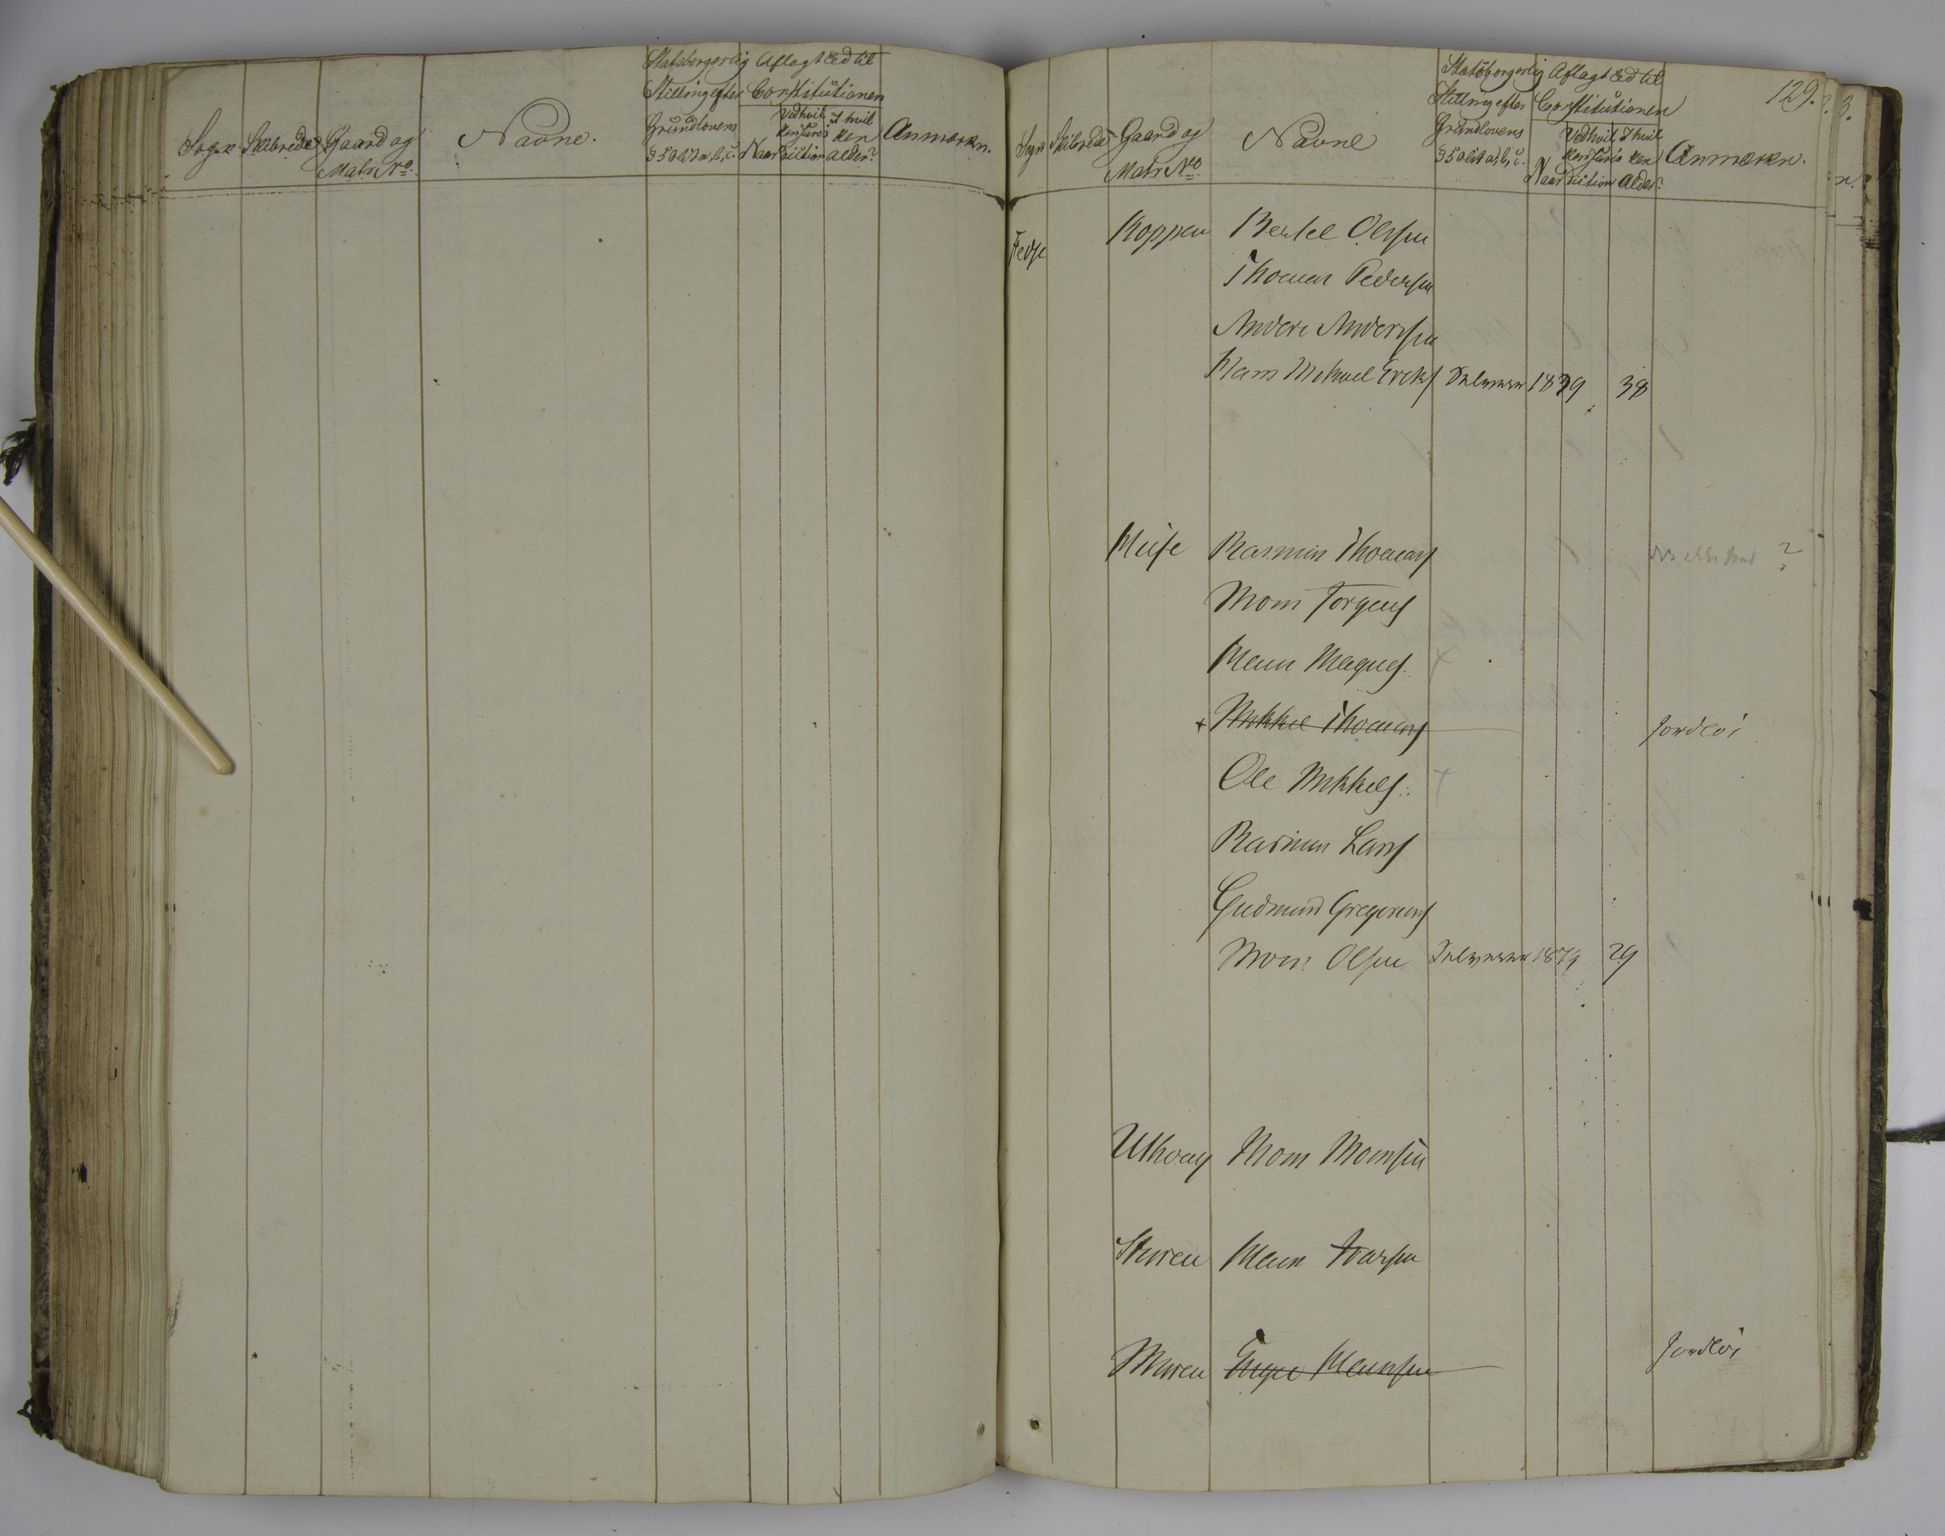 Sogn Skibrede Gaard og Matr. No. Navne. Statsborgerlig Stilling efter Grundlovens § 50 Litr a, b, c. Aflagt Ed til Constitutionen Naar Ved hvilken Jurisdiction I hvilken Alder? Anmærkn.
129.
Sogn Skibrede Gaard og Matr No. Navne Statsborgerlig Stilling efter Grundlovens § 50 Litr a, b, c. Aflagt Ed til Constitutionen Naar Ved hvilken Jurisdiction I hvilken Alder? Anmærkn.
Fedje Koppen Bertel Olsen
Thomas Pedersen
Anders Andersen
Hans Mikael Ericks Selveier 1879 38
Husе Rasmus Thomas ?
Mons Jörgens
Hans Magnes
Mikkel Thomas Jordlös
Ole Mikkels
Rasmus Lars
Gudmund Gregorius
Mons Olsen Selveier 1879 29
Uthvaag Mons Monsen
Sturen Hans Ivarsen
Muren Hansen Jordlös